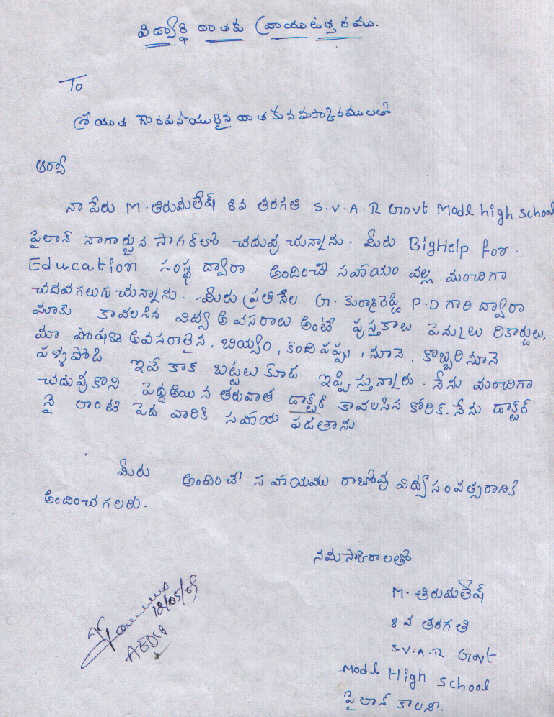 విద్యార్థి దాతకు వ్రాయు ఉత్తరము.
To
శ్రీయుత గౌరవనీయులైన దాతకు నమస్కారములతో
అంకుల్
నా పేరు M. తిరుమలేష్ 8వ తరగతి S.V.A.R Govt Modl high school
పైలాన్ నాగార్జున సాగర్‌లో చదువుచున్నాను. మీరు BigHelp for.
Education సంస్థ ద్వారా అందించే సహాయం వల్ల మంచిగా
చదవగలుగుచున్నాను. మీరు ప్రతినెల G. కుర్మారెడ్డి P.D గారి ద్వారా
మాకు కావలసిన విద్యా అవసరాలు అంటే పుస్తకాలు పెన్నులు రికార్డులు,
మా పోషణ అవసరాలైన. బియ్యం, కందిపప్పు, నూనె, కొబ్బరినూనె
పళ్ళపొడి ఇవే కాక బట్టలు కూడ ఇప్పిస్తున్నారు. నేను మంచిగా
చదువుకొని పెద్ద అయిన తరువాత డాక్టర్ కావలసిన కోరిక. నేను డాక్టర్
నై నాలాంటి పేద వారికి సహాయ పడతాను
మీరు అందించే సహాయము రాబోవు విద్యాసంవత్సరానికి
అందించగలరు.
నమస్కారాలతో
M. తిరుమలేష్
8వ తరగతి
S.V.A.R Govt
Modl High School
పైలాన్ కాలని.
10/05/09